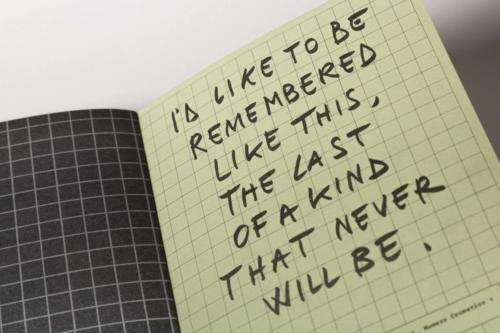 I'D LIKE TO BE
REMEMBERED
LIKE THIS,
THE LAST
OF A KIND
THAT NEVER
WILL BE.
Numero Cromatico's